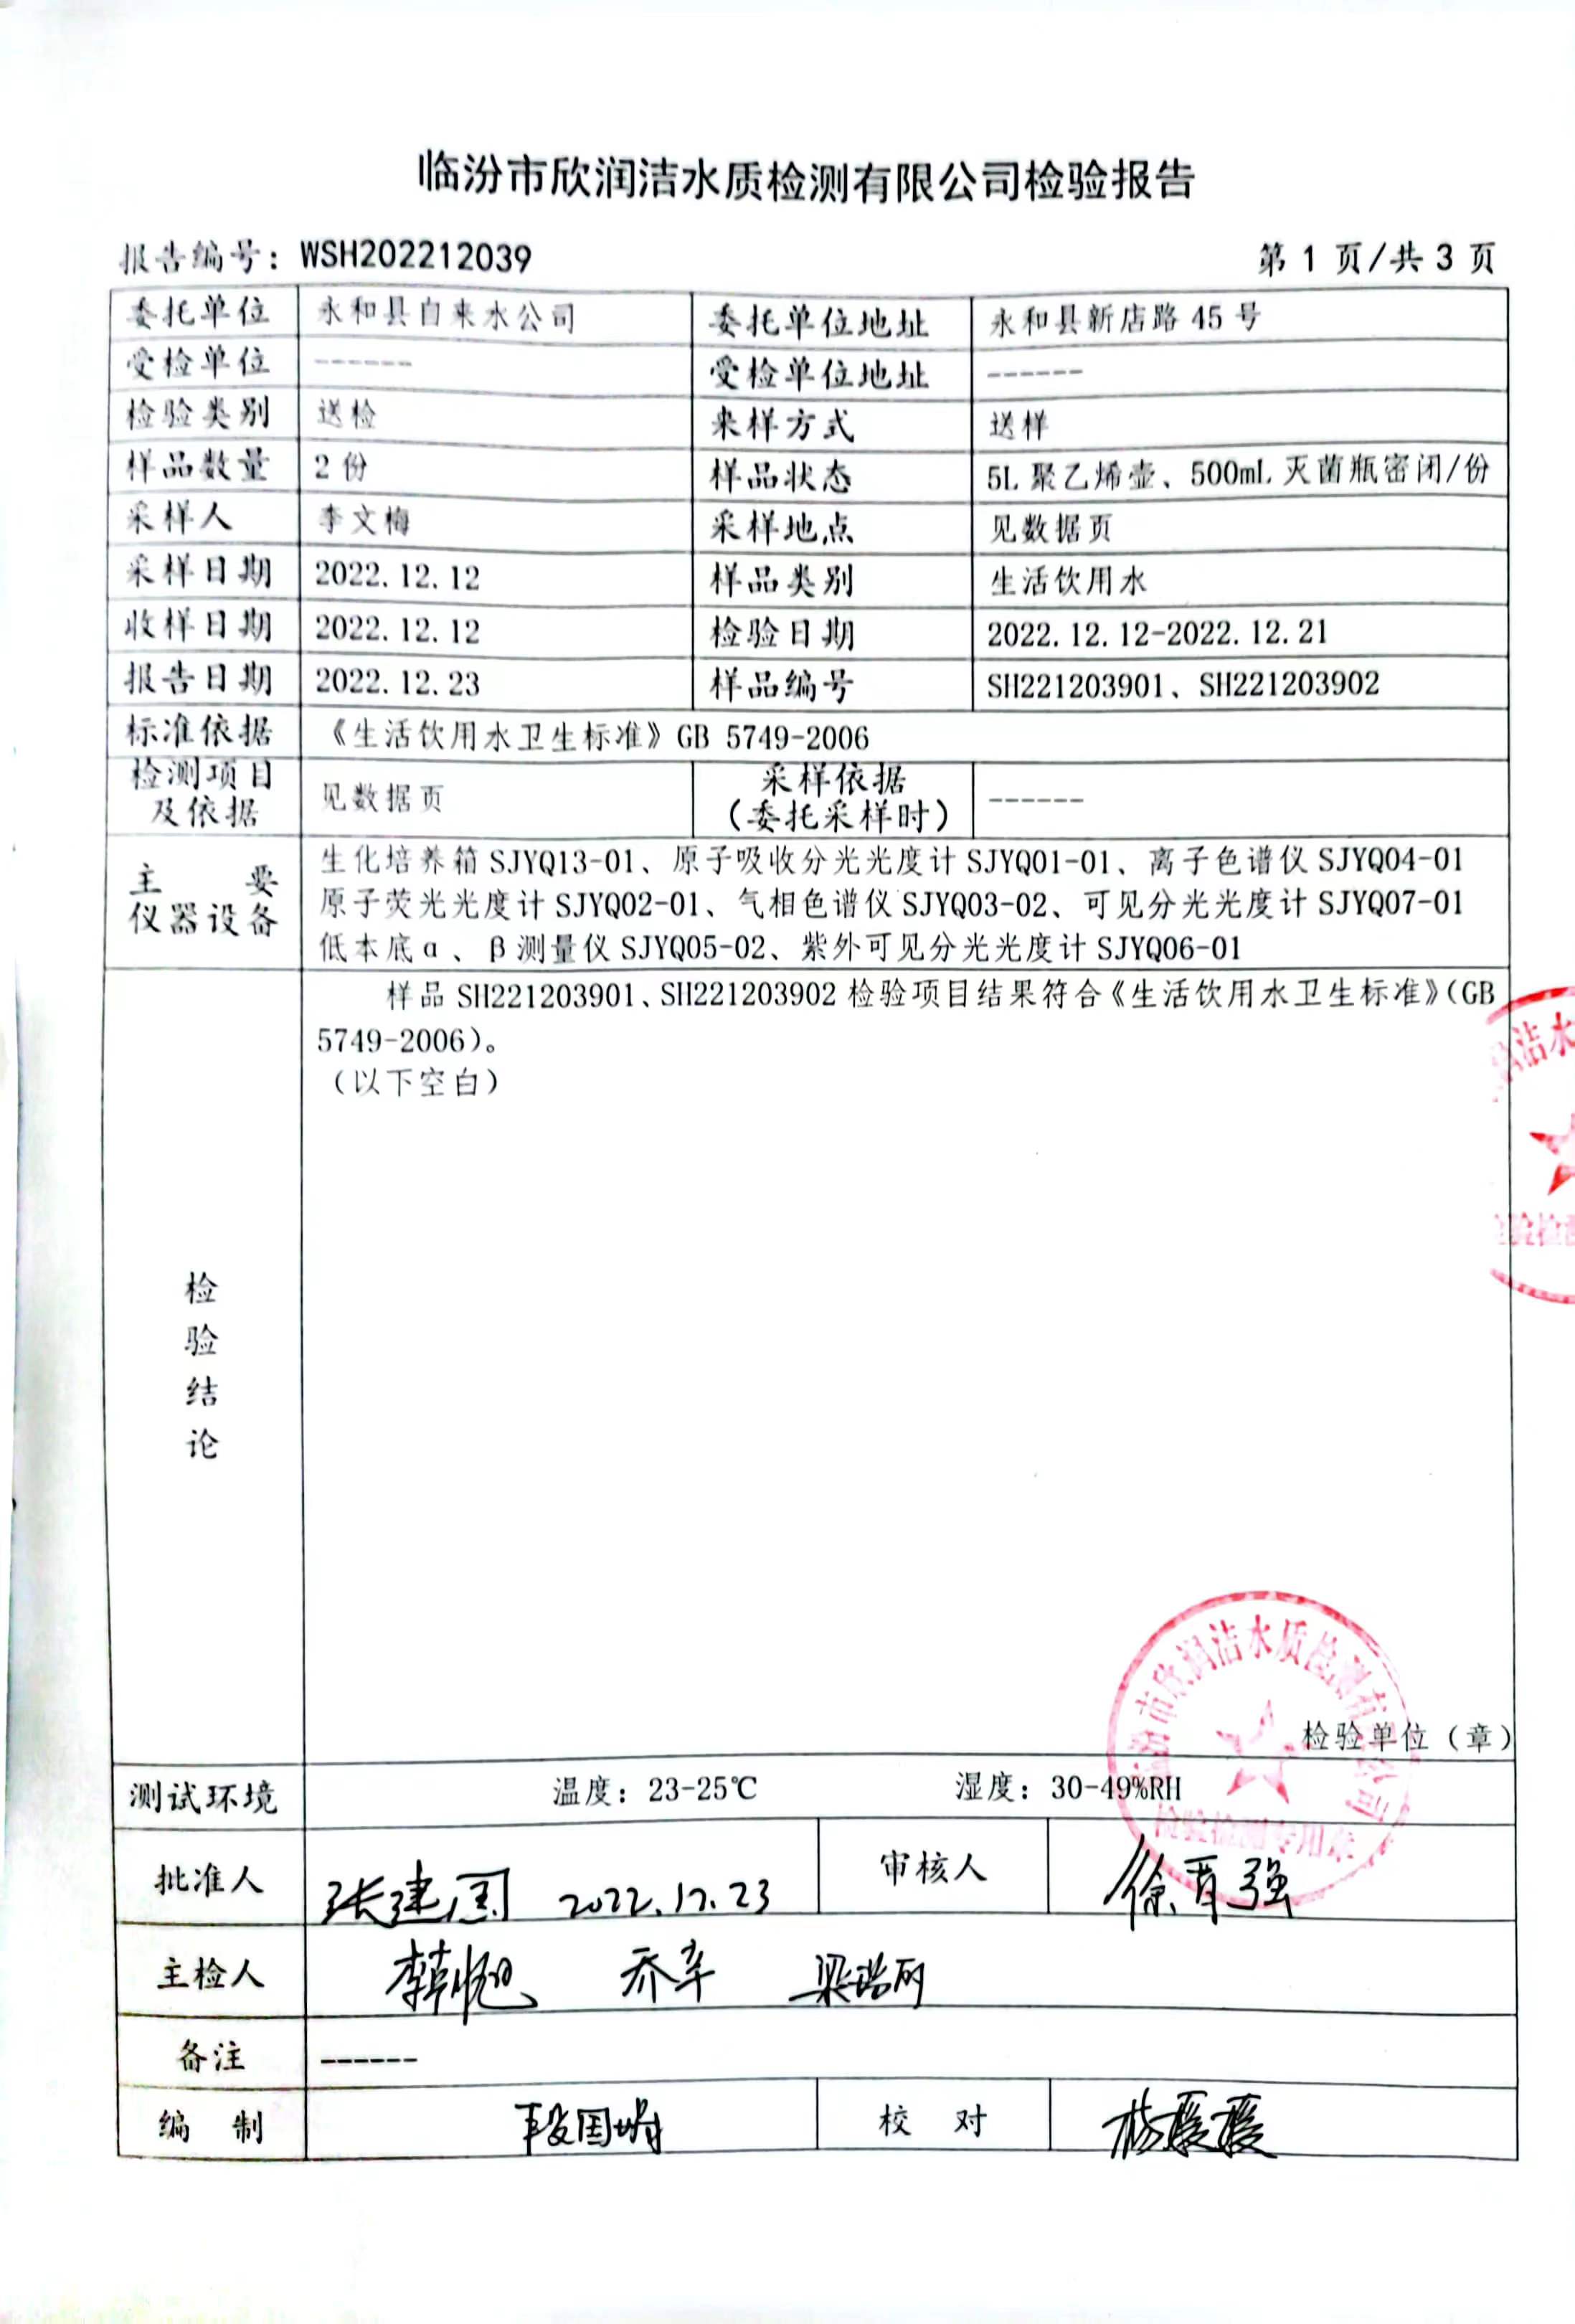 临汾市欣润洁水质检测有限公司检验报告
报告编号：WSH202212039 第 1 页/共 3 页
委托单位 永和县自来水公司 委托单位地址 永和县新店路 45 号
受检单位 ------ 受检单位地址 ------
检验类别 送检 来样方式 送样
样品数量 2 份 样品状态 5L 聚乙烯壶、500mL 灭菌瓶密闭/份
采样人 李文梅 采样地点 见数据页
采样日期 2022.12.12 样品类别 生活饮用水
收样日期 2022.12.12 检验日期 2022.12.12-2022.12.21
报告日期 2022.12.23 样品编号 SH221203901、SH221203902
标准依据 《生活饮用水卫生标准》GB 5749-2006
检测项目及依据 见数据页 采样依据（委托采样时） ------
主要仪器设备
生化培养箱 SJYQ13-01、原子吸收分光光度计 SJYQ01-01、离子色谱仪 SJYQ04-01
原子荧光光度计 SJYQ02-01、气相色谱仪 SJYQ03-02、可见分光光度计 SJYQ07-01
低本底α、β测量仪 SJYQ05-02、紫外可见分光光度计 SJYQ06-01
检验结论
样品 SH221203901、SH221203902 检验项目结果符合《生活饮用水卫生标准》（GB
5749-2006）。
（以下空白）
洁水
临汾市欣润洁水质检测有限公司
检验检测专用章
检验单位（章）
测试环境 温度：23-25℃ 湿度：30-49%RH
批准人 张建国 2022.12.23 审核人 徐晋强
主检人 乔辛
备注 ------
编 制 校 对 杨媛媛